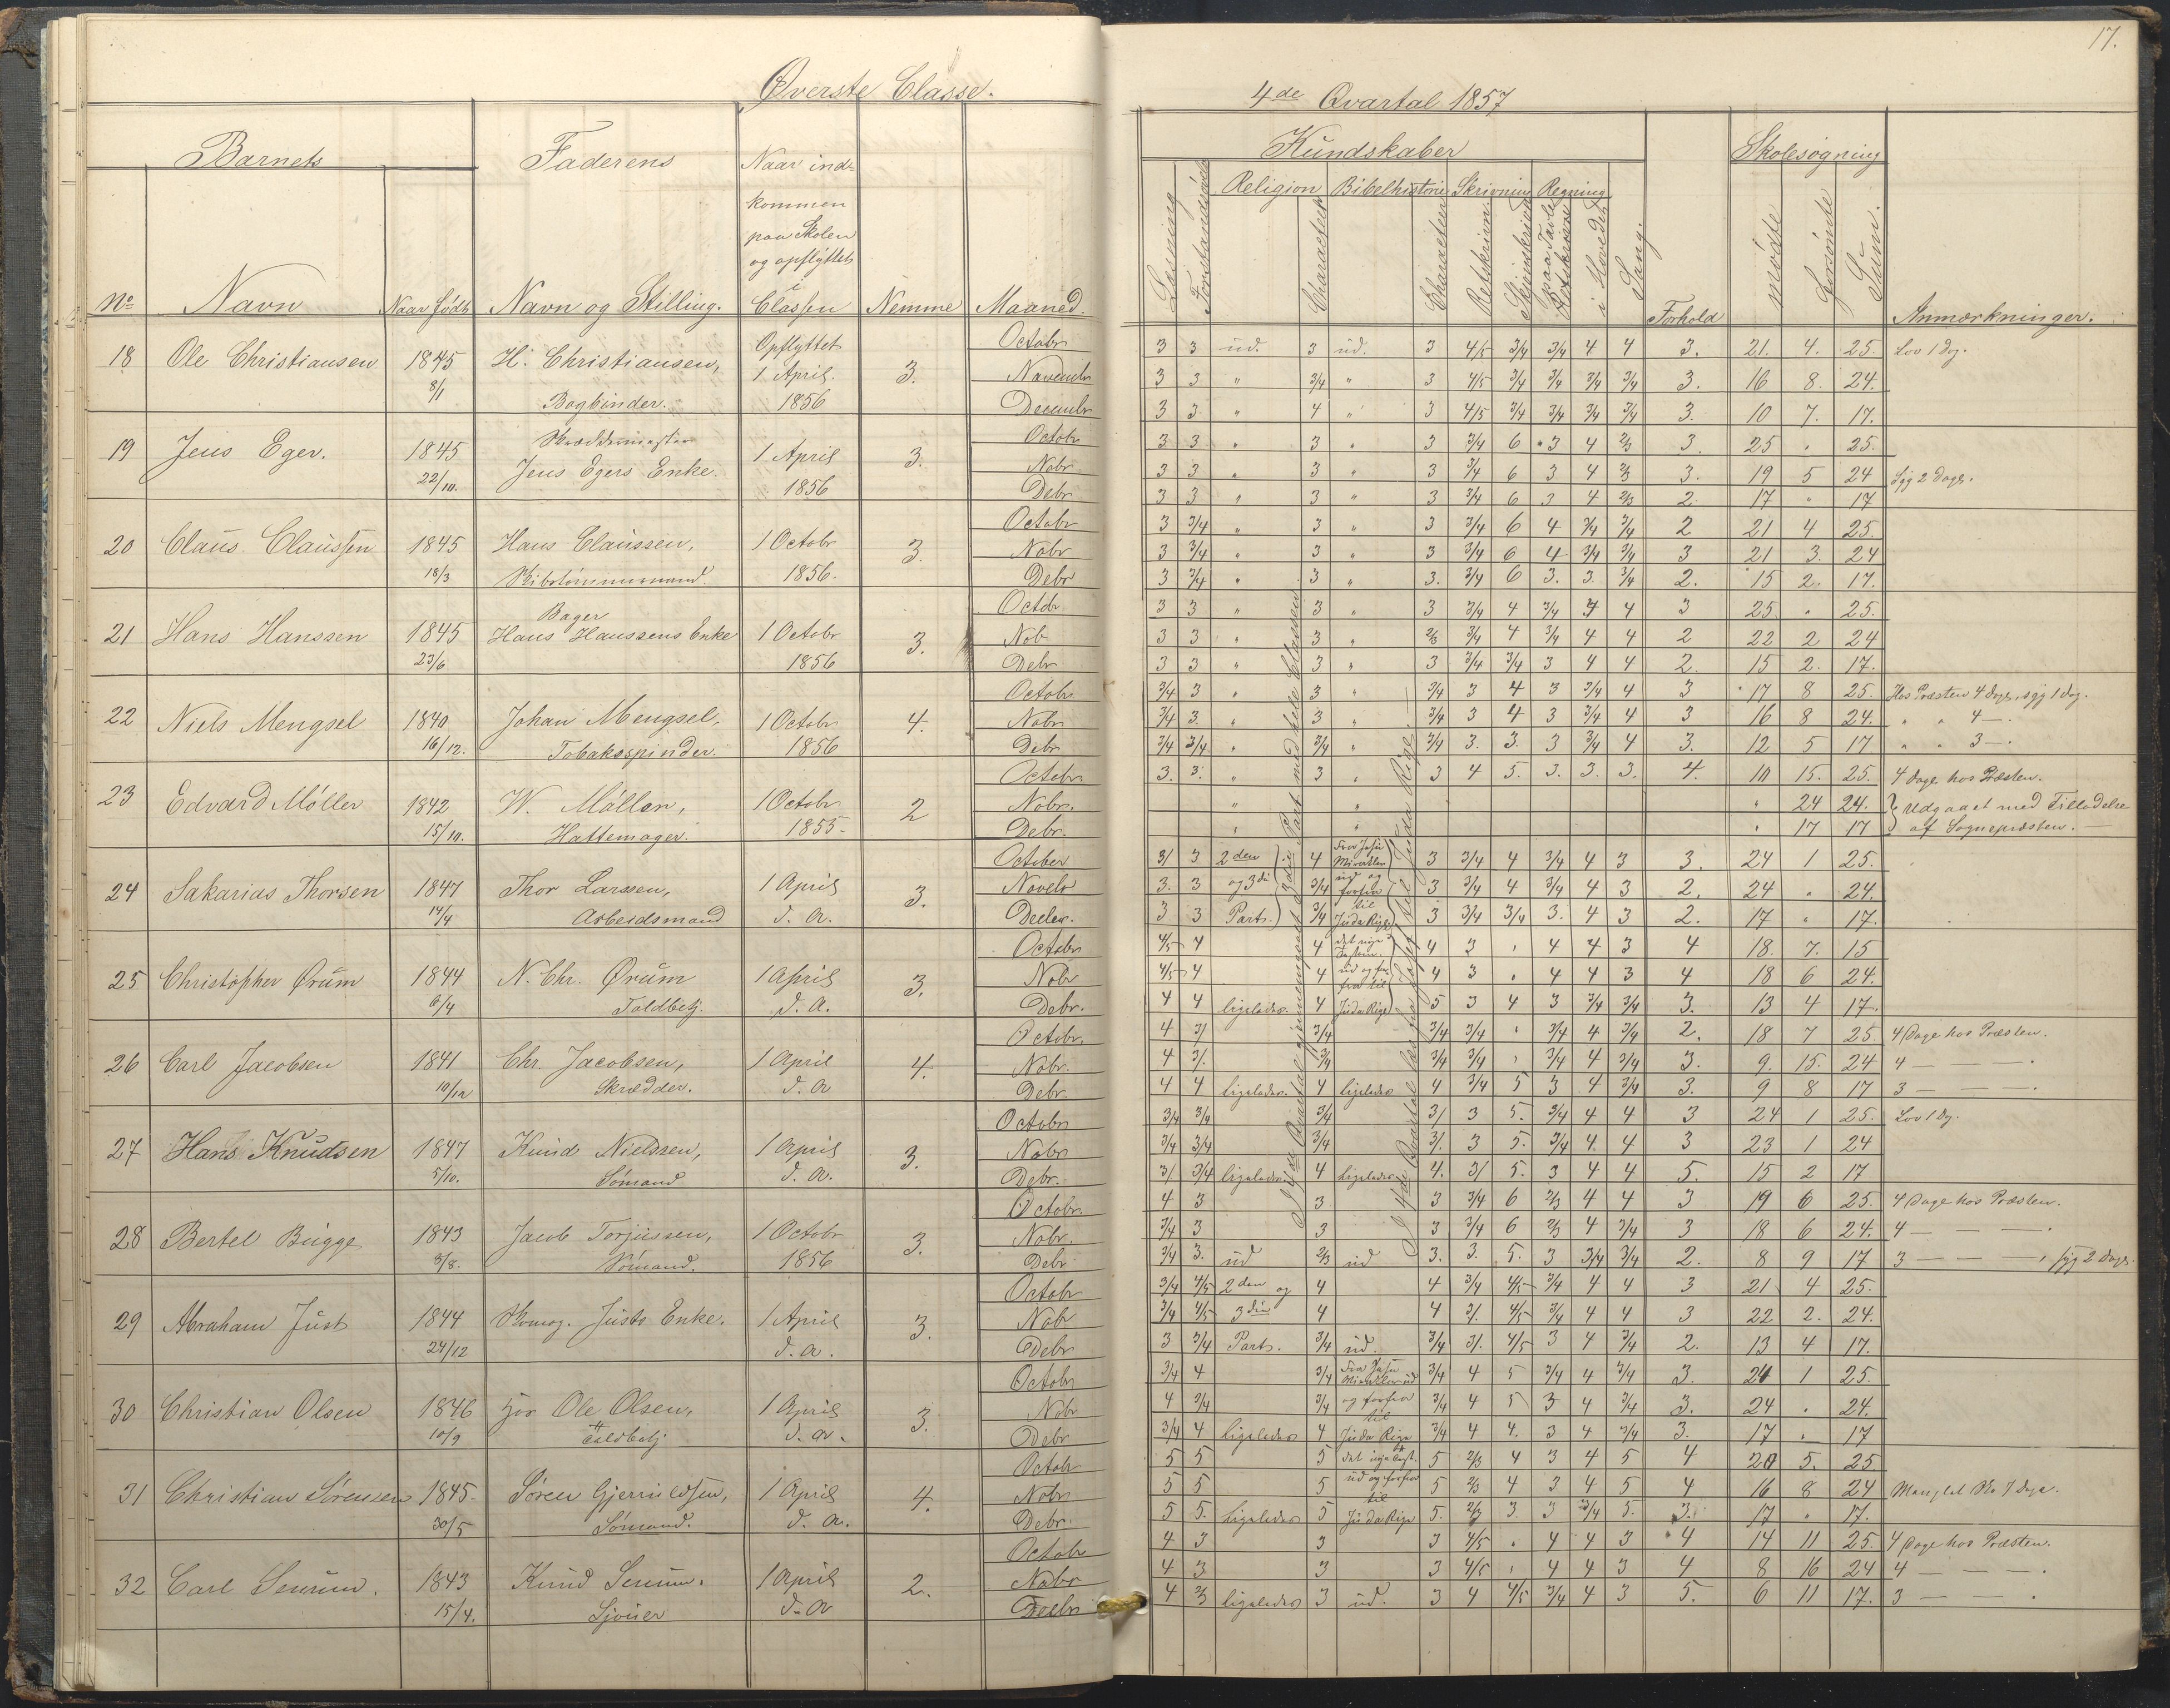 17.
Øverste Classe.
4de Qvartal 1857
Barnets
Faderens
Naar ind-
kommen
paa Skolen
og opflyttet
i
Classen
No
Navn
Naar født
Navn og Stilling.
Nemme
Maaned.
Kundskaber
Skolesøgning
Religion Bibelhistorie Skrivning Regning
Læsning
Forstandsøvelse
Characteer
Characteer
Retskrivn.
Skjønskrivn.
paa Tavle
i Hovedet
Sang.
Forhold
mødte
forsømte
Sum.
Anmærkninger.
18 Ole Christiansen 1845 8/1 H. Christiansen, Bogbinder. Opflyttet 1 April. 1856 3.
Octobr 3 3 ud. 3 ud. 3 4/5 3/4 3/4 4 4 3. 21. 4. 25. Lov 1 Dag.
Novembr 3 3 " 3/4 " 3 4/5 3/4 3/4 3/4 3/4 3. 16 8. 24.
Decembr 3 3 " 4 " 3 4/5 3/4 3/4 3/4 3/4 3. 10 7. 17.
19 Jens Eger. 1845 22/10. Jens Egers Enke. 1 April 1856 3.
Octobr 3 3 " 3 " 3 3/4 6 3 4 2/3 3. 25 " 25.
Nobr 3 3 " 3 " 3 3/4 6 3 4 2/3 3. 19 5 24 Syg 2 Dage.
Debr 3 3 " 3 " 3 3/4 6 3 4 2/3 2. 17 " 17
20 Claus Claussen 1845 18/3 Hans Claussen, Skibstømmermand. 1 Octobr 1856. 3.
Octobr 3 3/4 " 3 " 3 3/4 6 4 3/4 3/4 2 21 4 25.
Nobr 3 3/4 " 3 " 3 3/4 6 4 3/4 3/4 3 21 3. 24
Debr 3 3/4 " 3 " 3. 3/4 6 3. 3. 3/4 2. 15 2. 17.
21 Hans Hanssen 1845 23/6 Bager Hans Hanssens Enke 1 Octobr 1856 3.
Octobr 3 3 " 3 " 3 3/4 4 3/4 4 4 3 25. " 25.
Nob 3 3 " 3 " 2/3 3/4 4 3/4 4 4 2 22 2 24
Debr 3 3 " 3 " 3 3/4 3/4 3 4 4 2. 15 2. 17.
22 Niels Mengsel 1840 16/12. Johan Mengsel, Tobaksspinder. 1 Octobr 1856 4.
Octobr 3/4 3 " 3 " 3/4 3 4 3 3/4 4 3 17 8 25. Hos Præsten 4 Dage, syg 1 Dag.
Nobr 3/4 3. " 3 " 3/4 3 4 3 3/4 4 3 16 8 24. " " 4 —.
Debr 3/4 3/4 " 3/4 " 3/4 3. 3. 3 3/4 4 3. 12 5 17 " " 3 —.
23 Edvard Møller 1842 15/10. W. Møller, Hattemager. 1 Octobr 1855. 2
Octobr 3. 3. " 3 " 3 4 5. 3. 3. 3. 4. 10 15. 25. 4 Dage hos Præsten.
Nobr. " " " 24 24. Udgaaet med Tilladelse
Debr. " " " 17 17 af Sognepræsten. —
24 Sakarias Thorsen 1847 14/4 Thor Larssen, Arbeidsmand 1 April d. A. 3.
October 3/ 3 2den 4 Fra Jesu Mirakler 3 3/4 4 3/4 4 3 3. 24 1 25.
Novebr 3. 3 og 3die 3/4 ud og forfra 3 3/4 4 3/4 4 3 2. 24 " 24.
Decbr. 3 3 Part. 3/4 til Juda Rige 3 3/4 3/4 3. 4 3 2. 17 " 17.
25 Christopher Ørum 1844 6/4 N. Chr. Ørum Toldbetj. 1 April d. A. 3.
Octobr 4/5 4 4 det nye Testam. 4 3 " 4 4 3 4 18. 7. 15
Nobr 4/5 4 4 ud og forfra til 4 3 " 4 4 3 4 18 6 24.
Debr. 4 4 ligeledes. 4 Juda Rige 5 3 4 3 3/4 3/4 3. 13 4 17.
26 Carl Jacobsen 1841 10/12 Chr. Jacobsen, Skrædder. 1 April d. A 4.
Octobr. 4 3/ 3/4 3/4 3/4 " 3/4 4 3/4 2. 18 7 25 4 Dage hos Præsten.
Nobr. 4 3/. 3/4 3/4 3/4 " 3/4 4 3/4 3. 9. 15. 24 4 — — — .
Debr 4 4 ligeledes. 4 ligeledes 4 3/4 5 3 4 3/4 3. 9 8 17 3 — — — .
27 Hans Knudsen 1847 5/10. Knud Nielssen, Sømand 1 April d. A. 3.
Octobr 3/4 3/4 3/4 3/ 3 5. 3/4 4 4 3 24 1 25. Lov 1 Dg.
Nobr 3/4 3/4 3/4 3/. 3 5. 3/4 4. 4 3 23 1 24
Debr. 3/. 3/4 ligeledes. 4 ligeledes 4. 3/ 5. 3 4 4 5. 15 2 17
28 Bertel Bugge 1843 8/8. Jacob Torjussen, Sømand. 1 Octobr 1856 3.
Octobr. 4 3 3 3 3/4 6 2/3 4 4 3 19 6 25. 4 Dage hos Præsten.
Nobr. 3/4 3 3 3 3/4 6 2/3 4 3/4 3 18 6 24. 4 — — — .
Debr 3/4 3. ud 2/3 ud 3. 3. 5. 3 3/4 3/4 2. 8 9 17 3 — — — , syg 2 Dage.
29 Abraham Just 1844 24/12 Skomag. Justs Enke. 1 April d. A. 3.
Octobr 3/4 4/5 2den og 4 4 3/4 4/5 3/4 4 4 3 21 4 25.
Nobr 3/4 4/5 3die 4 4 3/. 4/5 3/4 4 4 3 22 2. 24.
Debr 3 3/4 Part. 3/4 ud. 3/4 3/. 4/5 3 4 3/4 2. 13 4 17.
30 Christian Olsen 1846 10/9 Ole Olsen, Toldbetj 1 April d. A. 3.
Octobr 3/4 4 3/4 Fra Jesu Mirakler ud 3/4 4 5 3/4 4 3/4 3. 24 1 25.
Nobr 4 3/4 3/4 og forfra til 3/4 4 5 3 4 3/4 3. 24 . 24.
Debr 3/4 4 ligeledes 4 Juda Rige 3/4 4 4. 3 4 3/4 3. 17 . 17
31 Christian Sørensen 1845. 30/5 Søren Gjerruldsen, Sømand. 1 April d. A. 4.
Octobr 5 5 5 det nye Test. 5 2/3 4 3 4 5 4 20 5. 25
Nobr 5 5 5 ud og forfra til 5 2/3 4 3 4 5 4 16 8 24 Manglet Sko 7 Dage.
Debr. 5 5. ligeledes 5 Juda Rige 5. 2/3 3. 3 3/4 5. 3. 17 " 17.
32 Carl Senum. 1843 15/4. Knud Senum. Sjouer 1 April d. A 2.
Octobr 4 3 3 3 4/5 " 4 4 3 4 14 11 25. 4 Dage hos Præsten.
Nobr 4 3 3 3 4/5 " 4 4 3 4 8 16 24 4 — — — .
Decbr 4 2/3 ligeledes 3 ud. 3 4 4/5 3/4 4 3 5. 6 11 17. 3 — — .
I 4de Qvartal gjennemgaaet 3die Part med hele Classen
I 4de Qvartal læst fra Josef til Juda Rige. —